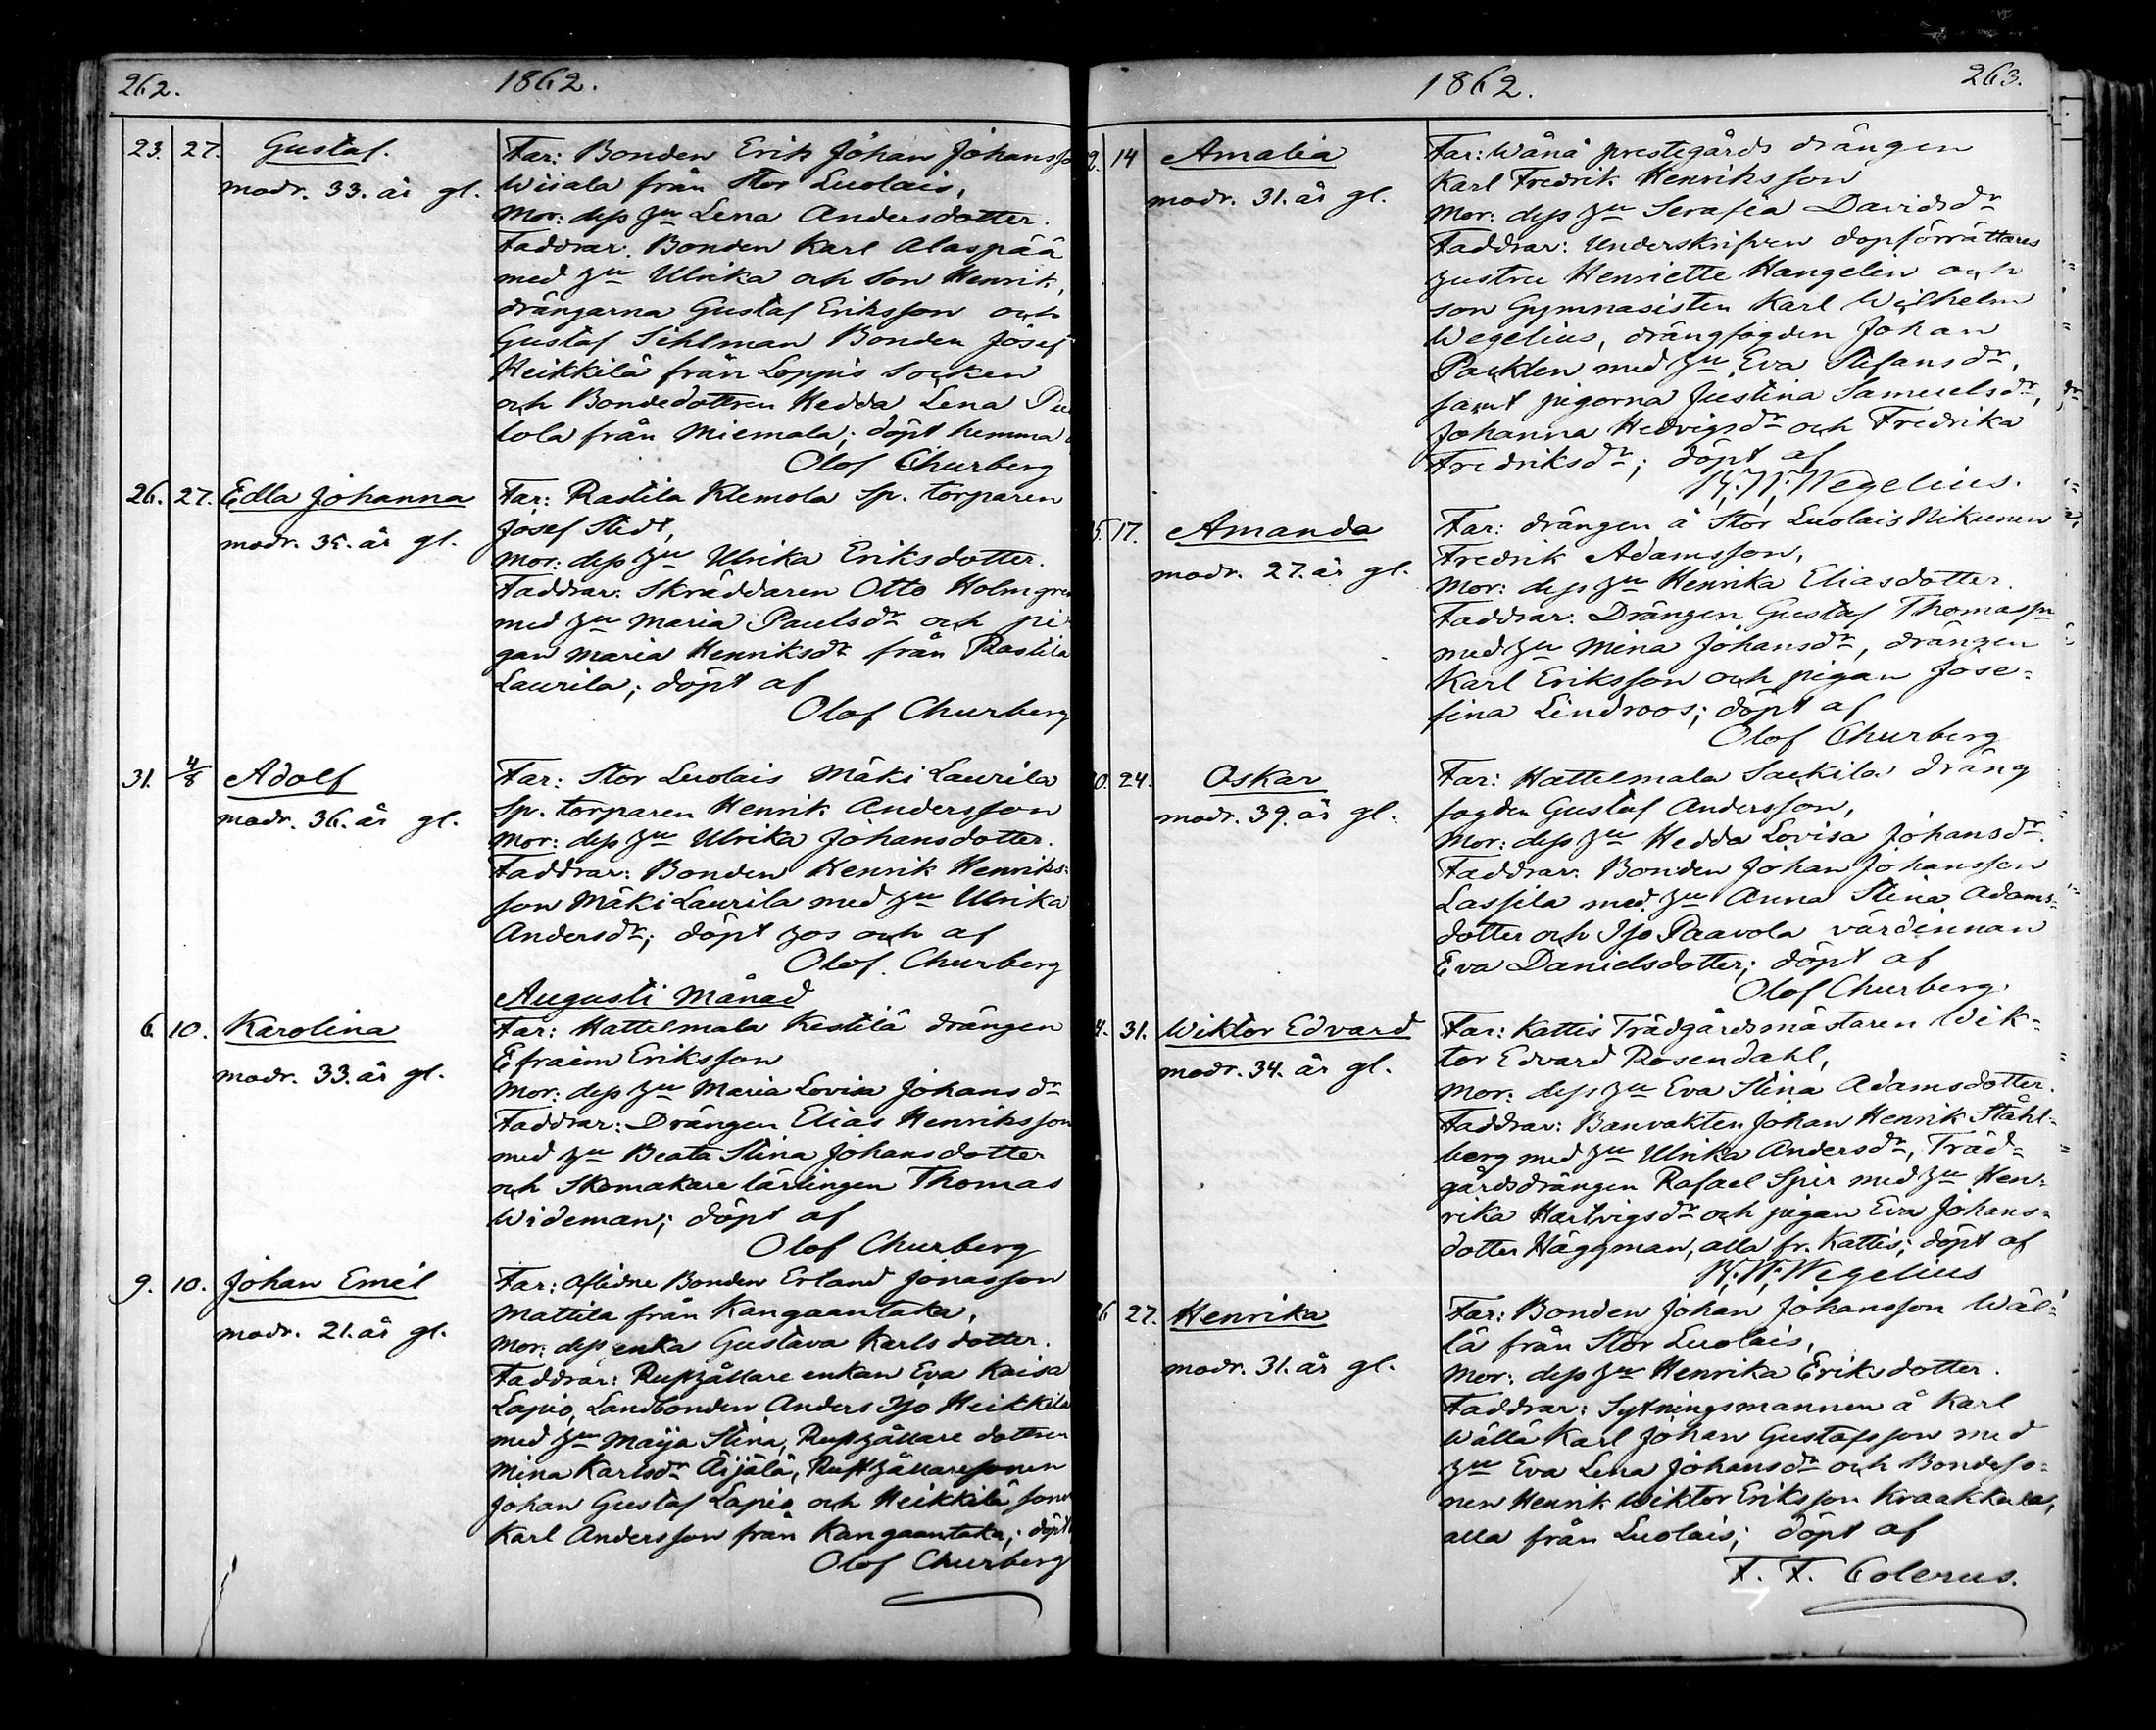 262. 1862.
23. 27. Gustaf.
modr. 33. år gl.
Far: Bonden Erik Johan Johansso
Wiiala från Stor Luolais,
Mor: dess hu Lena Andersdotter.
Faddrar: Bonden Karl Alaspää
med hu Ulrika och son Henrik,
drängarna Gustaf Eriksson och
Gustaf Sihlman Bonden Josef
Heikkilä från Loppis socken
och Bondedottren Hedda Lena
lola från Miemala; döpt hemma
Olof Churberg
26. 27. Edla Johanna
modr. 35. år gl.
Far: Rastila Klemola sp. torparen
Josef Stedt,
Mor: dess hu Ulrika Eriksdotter.
Faddrar: Skräddaren Otto Holmgren
med hu Maria Paulsdr och pi
gan Maria Henriksdr från Rastila
Laurila; döpt af
Olof Churberg
31. 4/8 Adolf
modr. 36. år gl.
Far: Stor Luolais Mäki Laurila
sp. torparen Henrik Andersson
Mor: dess hu Ulrika Johansdotter.
Faddrar: Bonden Henrik Henriks=
son Mäki Laurila med hu Ulrika
Andersdr; döpt hos och af
Olof. Churberg
Augusti Månad
6 10. Karolina
modr. 33. år gl.
Far: Hattelmala Kestilä drängen
Efraim Eriksson
Mor: dess hu Maria Lovisa Johansdr
Faddrar: Drängen Elias Henriksson
med hu Beata Stina Johansdotter
och Skomakare lärlingen Thomas
Wideman; döpt af
Olof Churberg
9. 10. Johan Emil
modr. 21. år gl.
Far: Aflidne Bonden Erland Jonasson
Mattila från Kangaantaka,
Mor: dess enka Gustava Karlsdotter.
Faddrar: Rusthållare enkan Eva Kaisa
Lapio, Landbonden Anders Iso Heikkilä
med hu Maija Stina, Rusthållare dottren
Mina Karlsdr Äijälä, Rusthållaresonen
Johan Gustaf Lapio och Heikkilä sonen
Karl Andersson från Kangaantaka; döpt
Olof Churberg
1862. 263.
2. 14 Amalia
modr. 31. år gl.
Far: Wånå prestegårds drängen
Karl Fredrik Henriksson
Mor: dess hu Serafia Davidsdr
Faddrar: Underskrifven dopförrättares
hustru Henriette Hangelin och
son Gymnasisten Karl Wilhelm
Wegelius, drängfogden Johan
Packlen med hu Eva Stefansdr,
samt pigorna Justina Samuelsdr,
Johanna Hedvigsdr och Fredrika
Fredriksdr; döpt af
K. W. Wegelius.
5. 17. Amanda
modr. 27. år gl.
Far: drängen å Stor Luolais Nikunen
Fredrik Adamsson,
Mor: dess hu Henrika Eliasdotter.
Faddrar: Drängen Gustaf Thomassn
med hu Mina Johansdr, drängen
Karl Eriksson och pigan Jose=
fina Lindroos; döpt af
Olof Churberg
0. 24. Oskar
modr. 39. år gl.
Far: Hattelmala Sackila dräng
fogden Gustaf Andersson,
Mor: dess hu Hedda Lovisa Johansdr.
Faddrar: Bonden Johan Johansson
Lassila med hu Anna Stina Adams=
dotter och Iso Paavola värdinnan
Eva Danielsdotter; döpt af
Olof Churberg.
4. 31. Wiktor Edvard
modr. 34. år gl.
Far: Kattis Trädgårdsmästaren Wik=
tor Edvard Rosendahl,
Mor: dess hu Eva Stina Adamsdotter.
Faddrar: Banvakten Johan Henrik Ståhl=
berg med hu Ulrika Andersdr, Träd=
gårdsdrängen Rafael Spir med hu Hen=
rika Hartvigsdr och pigan Eva Johans=
dotter Häggman, alla fr. Kattis; döpt af
K. W. Wegelius
6 27. Henrika
modr. 31. år gl.
Far: Bonden Johan Johansson Wäl=
lä från Stor Luolais,
Mor: dess hu Henrika Eriksdotter.
Faddrar: Sytningsmannen å Karl
Wällä Karl Johan Gustafsson med
hu Eva Lena Johansdr och Bondeso=
nen Henrik Wiktor Eriksson Kraakkala,
alla från Luolais; döpt af
F. F. Colerus.